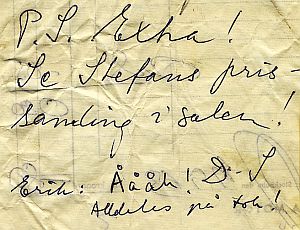 P.S. Extra!
Se Stefans pris-
samling i salen!
Erik: Åååh! D-S
Alldeles på tok!